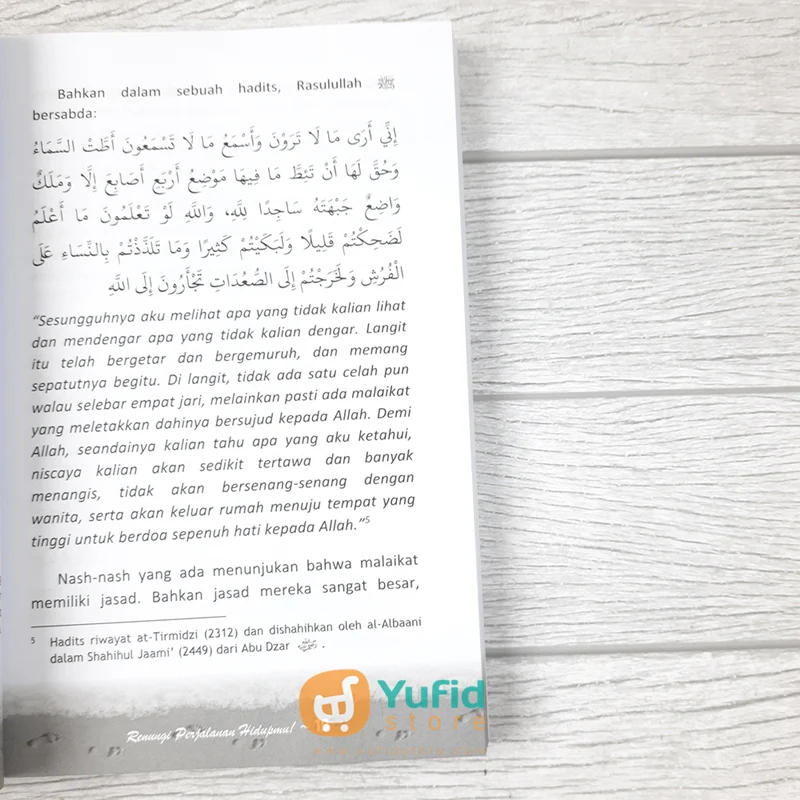 Bahkan dalam sebuah hadits, Rasulullah ﷺ
bersabda:
إِنِّي أَرَى مَا لَا تَرَوْنَ وَأَسْمَعُ مَا لَا تَسْمَعُونَ أَطَّتْ السَّمَاءُ
وَحُقَّ لَهَا أَنْ تَئِطَّ مَا فِيهَا مَوْضِعُ أَرْبَعِ أَصَابِعَ إِلَّا وَمَلَكٌ
وَاضِعٌ جَبْهَتَهُ سَاجِدًا لِلَّهِ، وَاللَّهِ لَوْ تَعْلَمُونَ مَا أَعْلَمُ
لَضَحِكْتُمْ قَلِيلًا وَلَبَكَيْتُمْ كَثِيرًا وَمَا تَلَذَّذْتُمْ بِالنِّسَاءِ عَلَى
الْفُرُشِ وَلَخَرَجْتُمْ إِلَى الصُّعُدَاتِ تَجْأَرُونَ إِلَى اللَّهِ
“Sesungguhnya aku melihat apa yang tidak kalian lihat
dan mendengar apa yang tidak kalian dengar. Langit
itu telah bergetar dan bergemuruh, dan memang
sepatutnya begitu. Di langit, tidak ada satu celah pun
walau selebar empat jari, melainkan pasti ada malaikat
yang meletakkan dahinya bersujud kepada Allah. Demi
Allah, seandainya kalian tahu apa yang aku ketahui,
niscaya kalian akan sedikit tertawa dan banyak
menangis, tidak akan bersenang-senang dengan
wanita, serta akan keluar rumah menuju tempat yang
tinggi untuk berdoa sepenuh hati kepada Allah.”5
Nash-nash yang ada menunjukan bahwa malaikat
memiliki jasad. Bahkan jasad mereka sangat besar,
5 Hadits riwayat at-Tirmidzi (2312) dan dishahihkan oleh al-Albaani
dalam Shahihul Jaami’ (2449) dari Abu Dzar .
Renungi Perjalanan Hidupmu! ~
Yufid
store